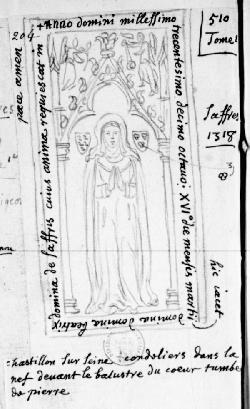 204.
+ ANNO domini millessimo
trecentesimo decimo octavo: XVI° die mensis martii
hic iacet
domina domina beatrix
domina de saffres cuius anima requiescat in
pace amen
510
Tome I
Saffres
1318
chastillon sur seine cordeliers dans la
nef devant le balustre du coeur tumbe
de pierre